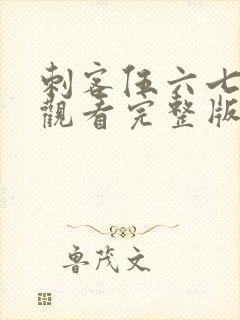 刺客伍六七
觀看完整版
魯茂文